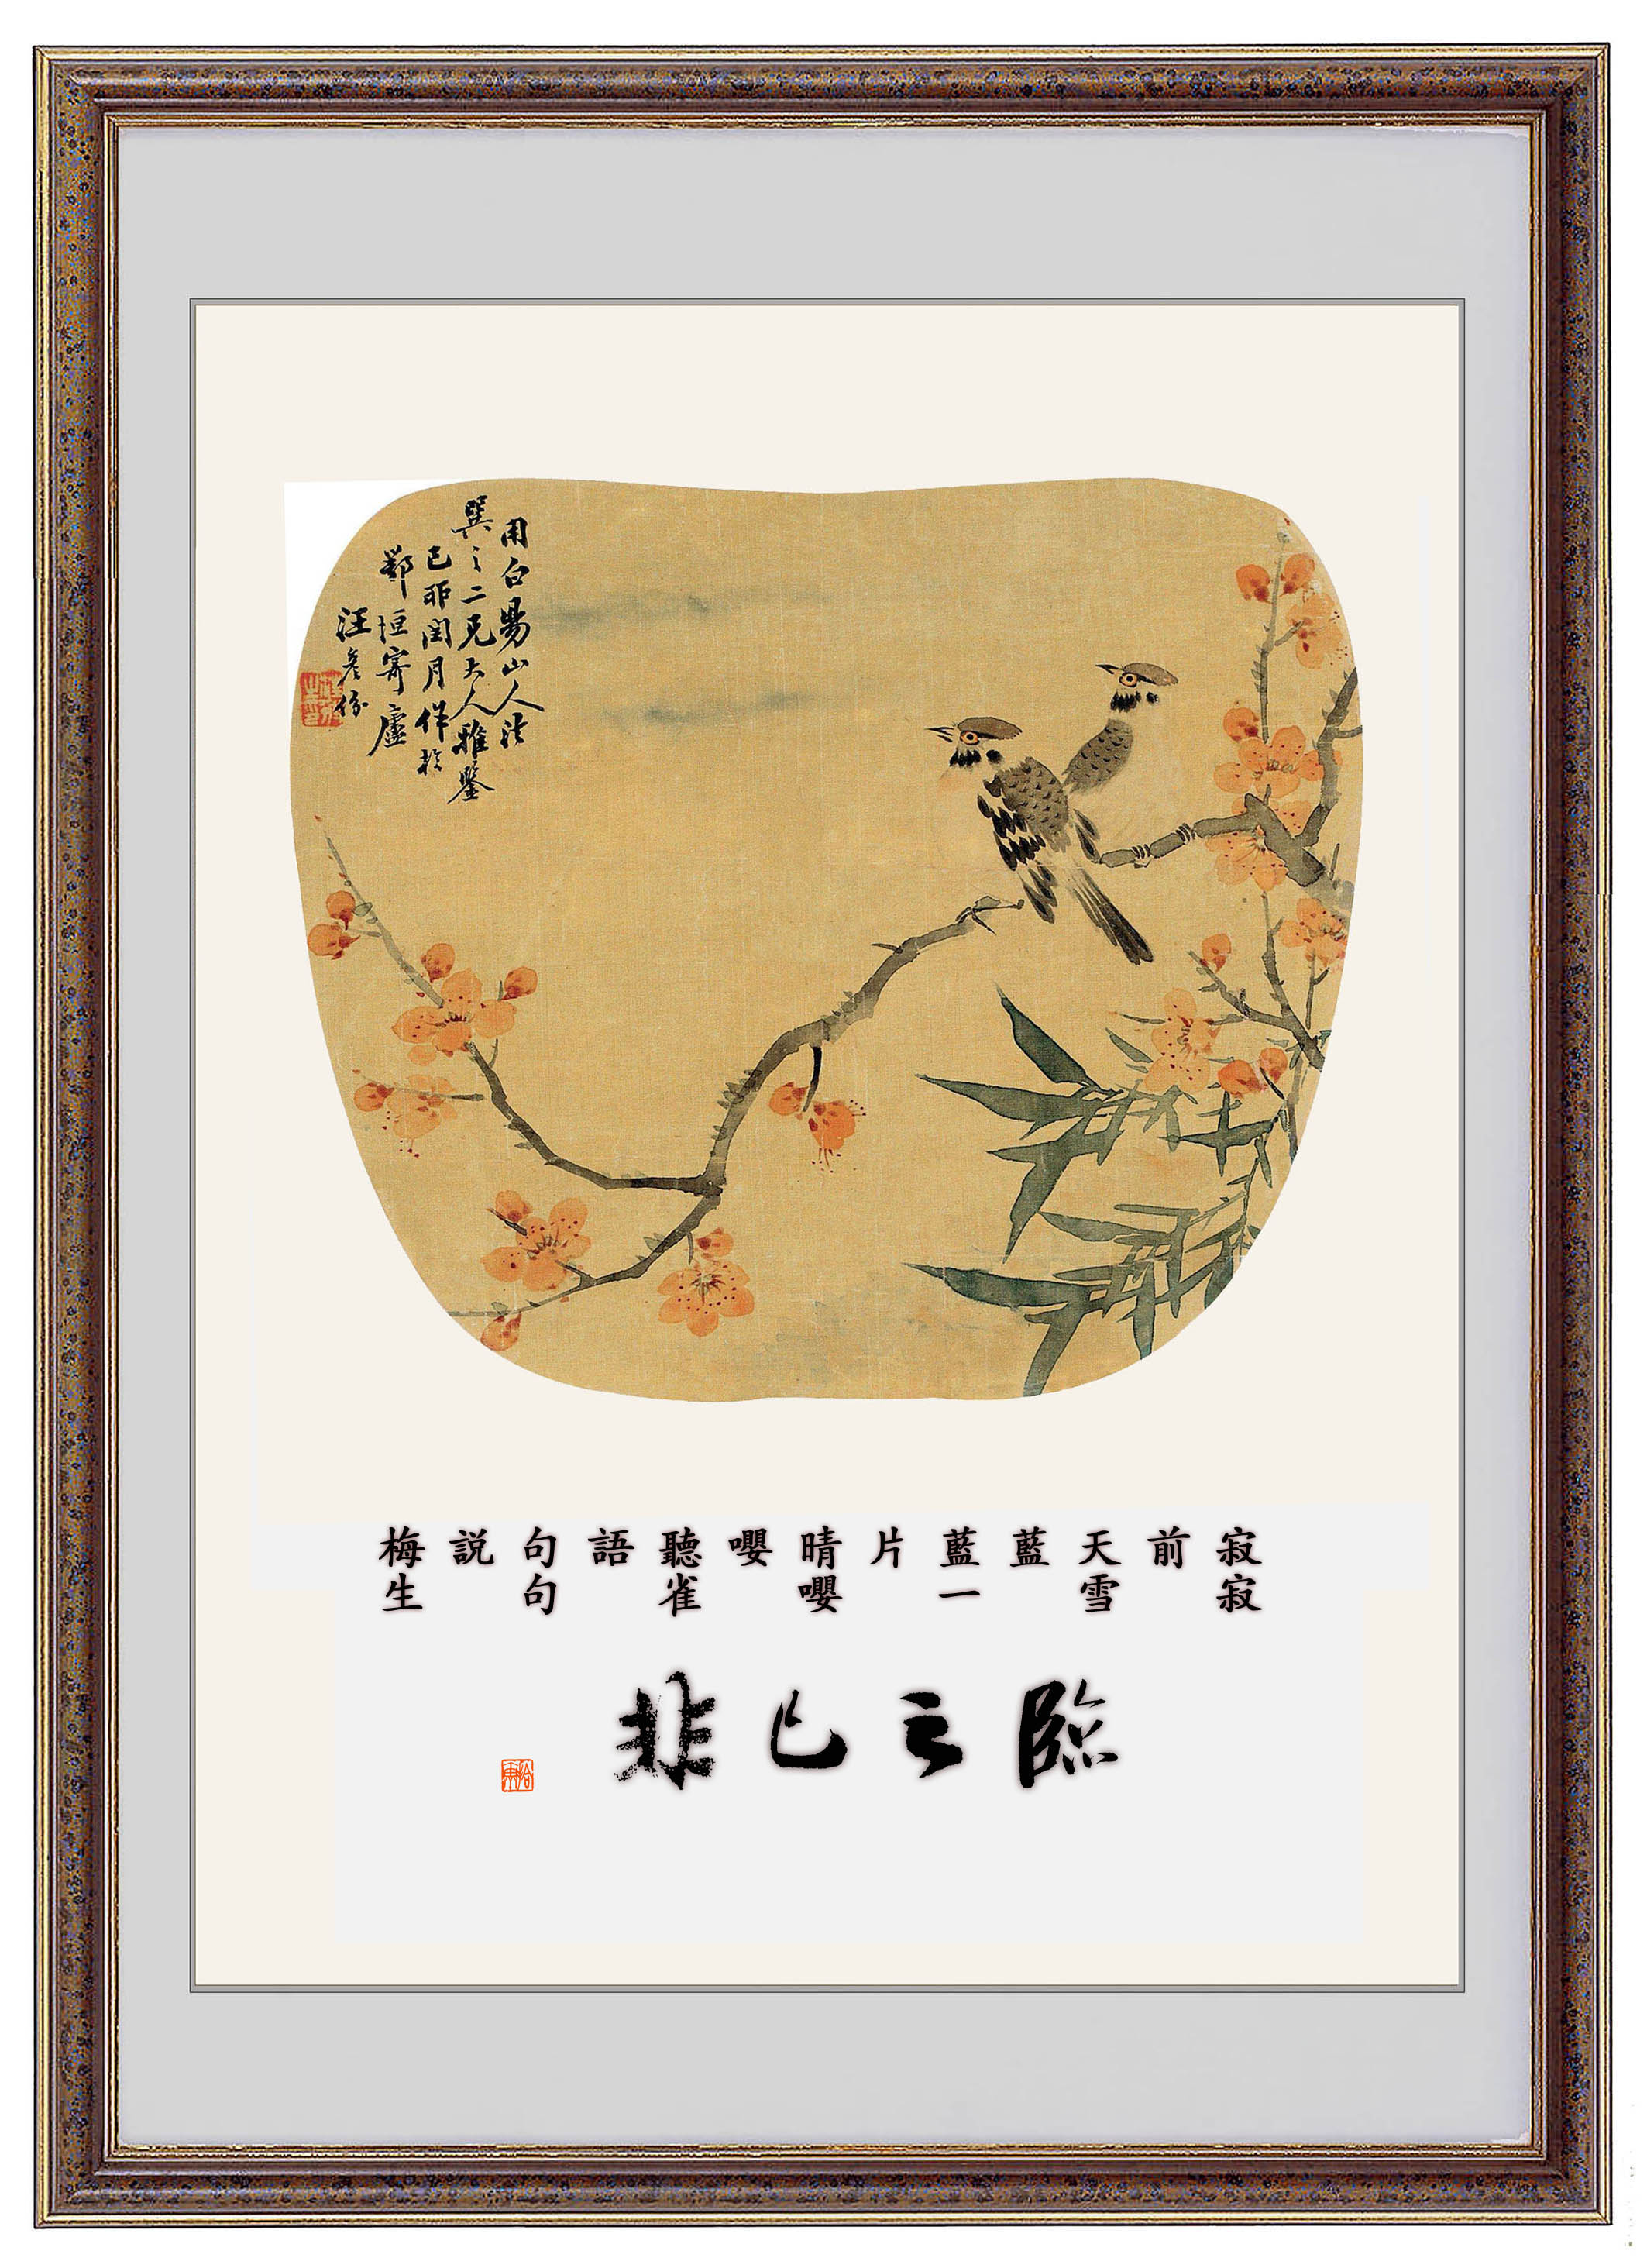 用白昜山人法
巽之二兄大人雅鑒
己卯閏月作於
鄂垣寄廬
汪彥份
寂寂
前
天雪
藍
藍一
片
晴嚶
嚶
聽雀
語
句句
説
梅生
臨云已非